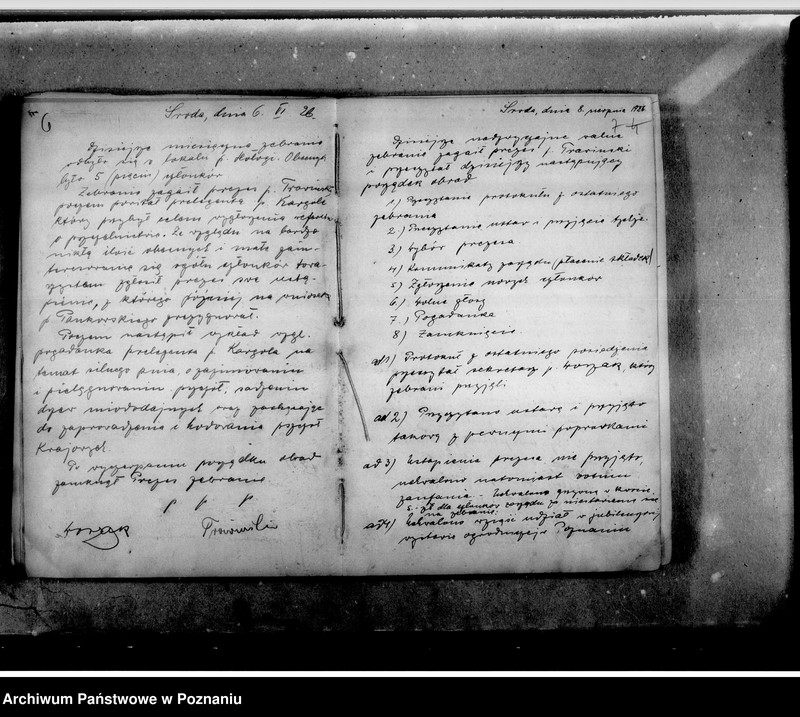 6
Środa, dnia 6. VI 26.
Dzisiejsze miesięczne zebranie
odbyło się w lokalu p. Kology. Obecnych
było 5 (pięciu) członków
Zebranie zagaił prezes p. Trawiński
poczem powitał prelegenta p. Kargola
który przybył celem wygłoszenia referatu
o pszczelnictwie. Ze względu na bardzo
nikłą ilość obecnych i małe zain-
teresowanie się ogółu członków towa-
rzystwem zgłosił prezes swe ustą-
pienie, z którego później na wniosek
p. Pankowskiego zrezygnował.
Poczem nastąpił wykład wzgl.
pogadanka prelegenta p. Kargola na
temat silnego pnia, o zazimowaniu
i pielęgnowaniu pszczół, sadzeniu
drzew miododajnych oraz zachęcając
do zaprowadzenia i hodowania pszczół
krajowych.
Po wyczerpaniu porządku obrad
zamknął Prezes zebranie
Worzak Trawiński
Środa, dnia 8. sierpnia 1926
7
Dzisiejsze nadzwyczajne walne
zebranie zagaił prezes p. Trawiński
i przeczytał dzisiejszy następujący
porządek obrad
1) Przeczytanie protokułu z ostatniego
zebrania
2.) Przeczytanie ustaw i przyjęcie tychże.
3.) Wybór prezesa
4) Komunikaty zarządu (płacenie składek)
5) Zgłoszenie nowych członków
6) Wolne głosy
7.) Pogadanka
8) Zamknięcie.
ad 1) Protokuł z ostatniego posiedzenia
przeczytał sekretarz p. Worzak, który
zebrani przyjęli
ad 2) Przeczytano ustawę i przyjęto
takową z pewnymi poprawkami
ad 3) Ustąpienia prezesa nie przyjęto,
uchwalono natomiast votum
zaufania. - Uchwalono grzywnę w kwocie
5.- zł dla członków zarządu za niestawienie się
na zebranie.
ad 4) Uchwalono wziąść udział w jubileuszowej
wystawie ogrodniczej w Poznaniu
Archiwum Państwowe w Poznaniu